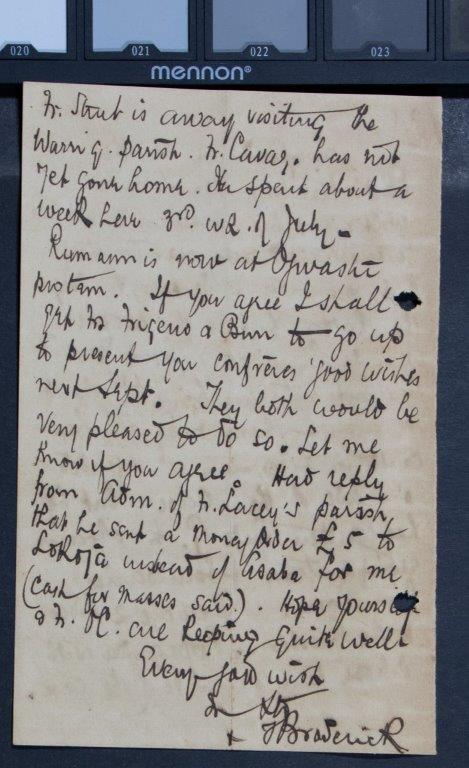 020 021 022 023
mennon®
Fr. Strub is away visiting the
Warri q. parish. Fr. Cavag. has not
yet gone home. He spent about a
week here 3rd. wk. of July.
Rumann is now at Ogwashi
protem. If you agree I shall
get Frs Frigerio & Burr to go up
to present you confrères' good wishes
next Sept. They both would be
very pleased to do so. Let me
know if you agree. Had reply
from Adm. of Fr. Lacey's parish,
that he sent a Money Order £5 to
Lokoja instead of Asaba for me
(Cash for Masses said.). Hope yourself
& Fr. are keeping quite well
Every good wish
In Xto
+ T Broderick